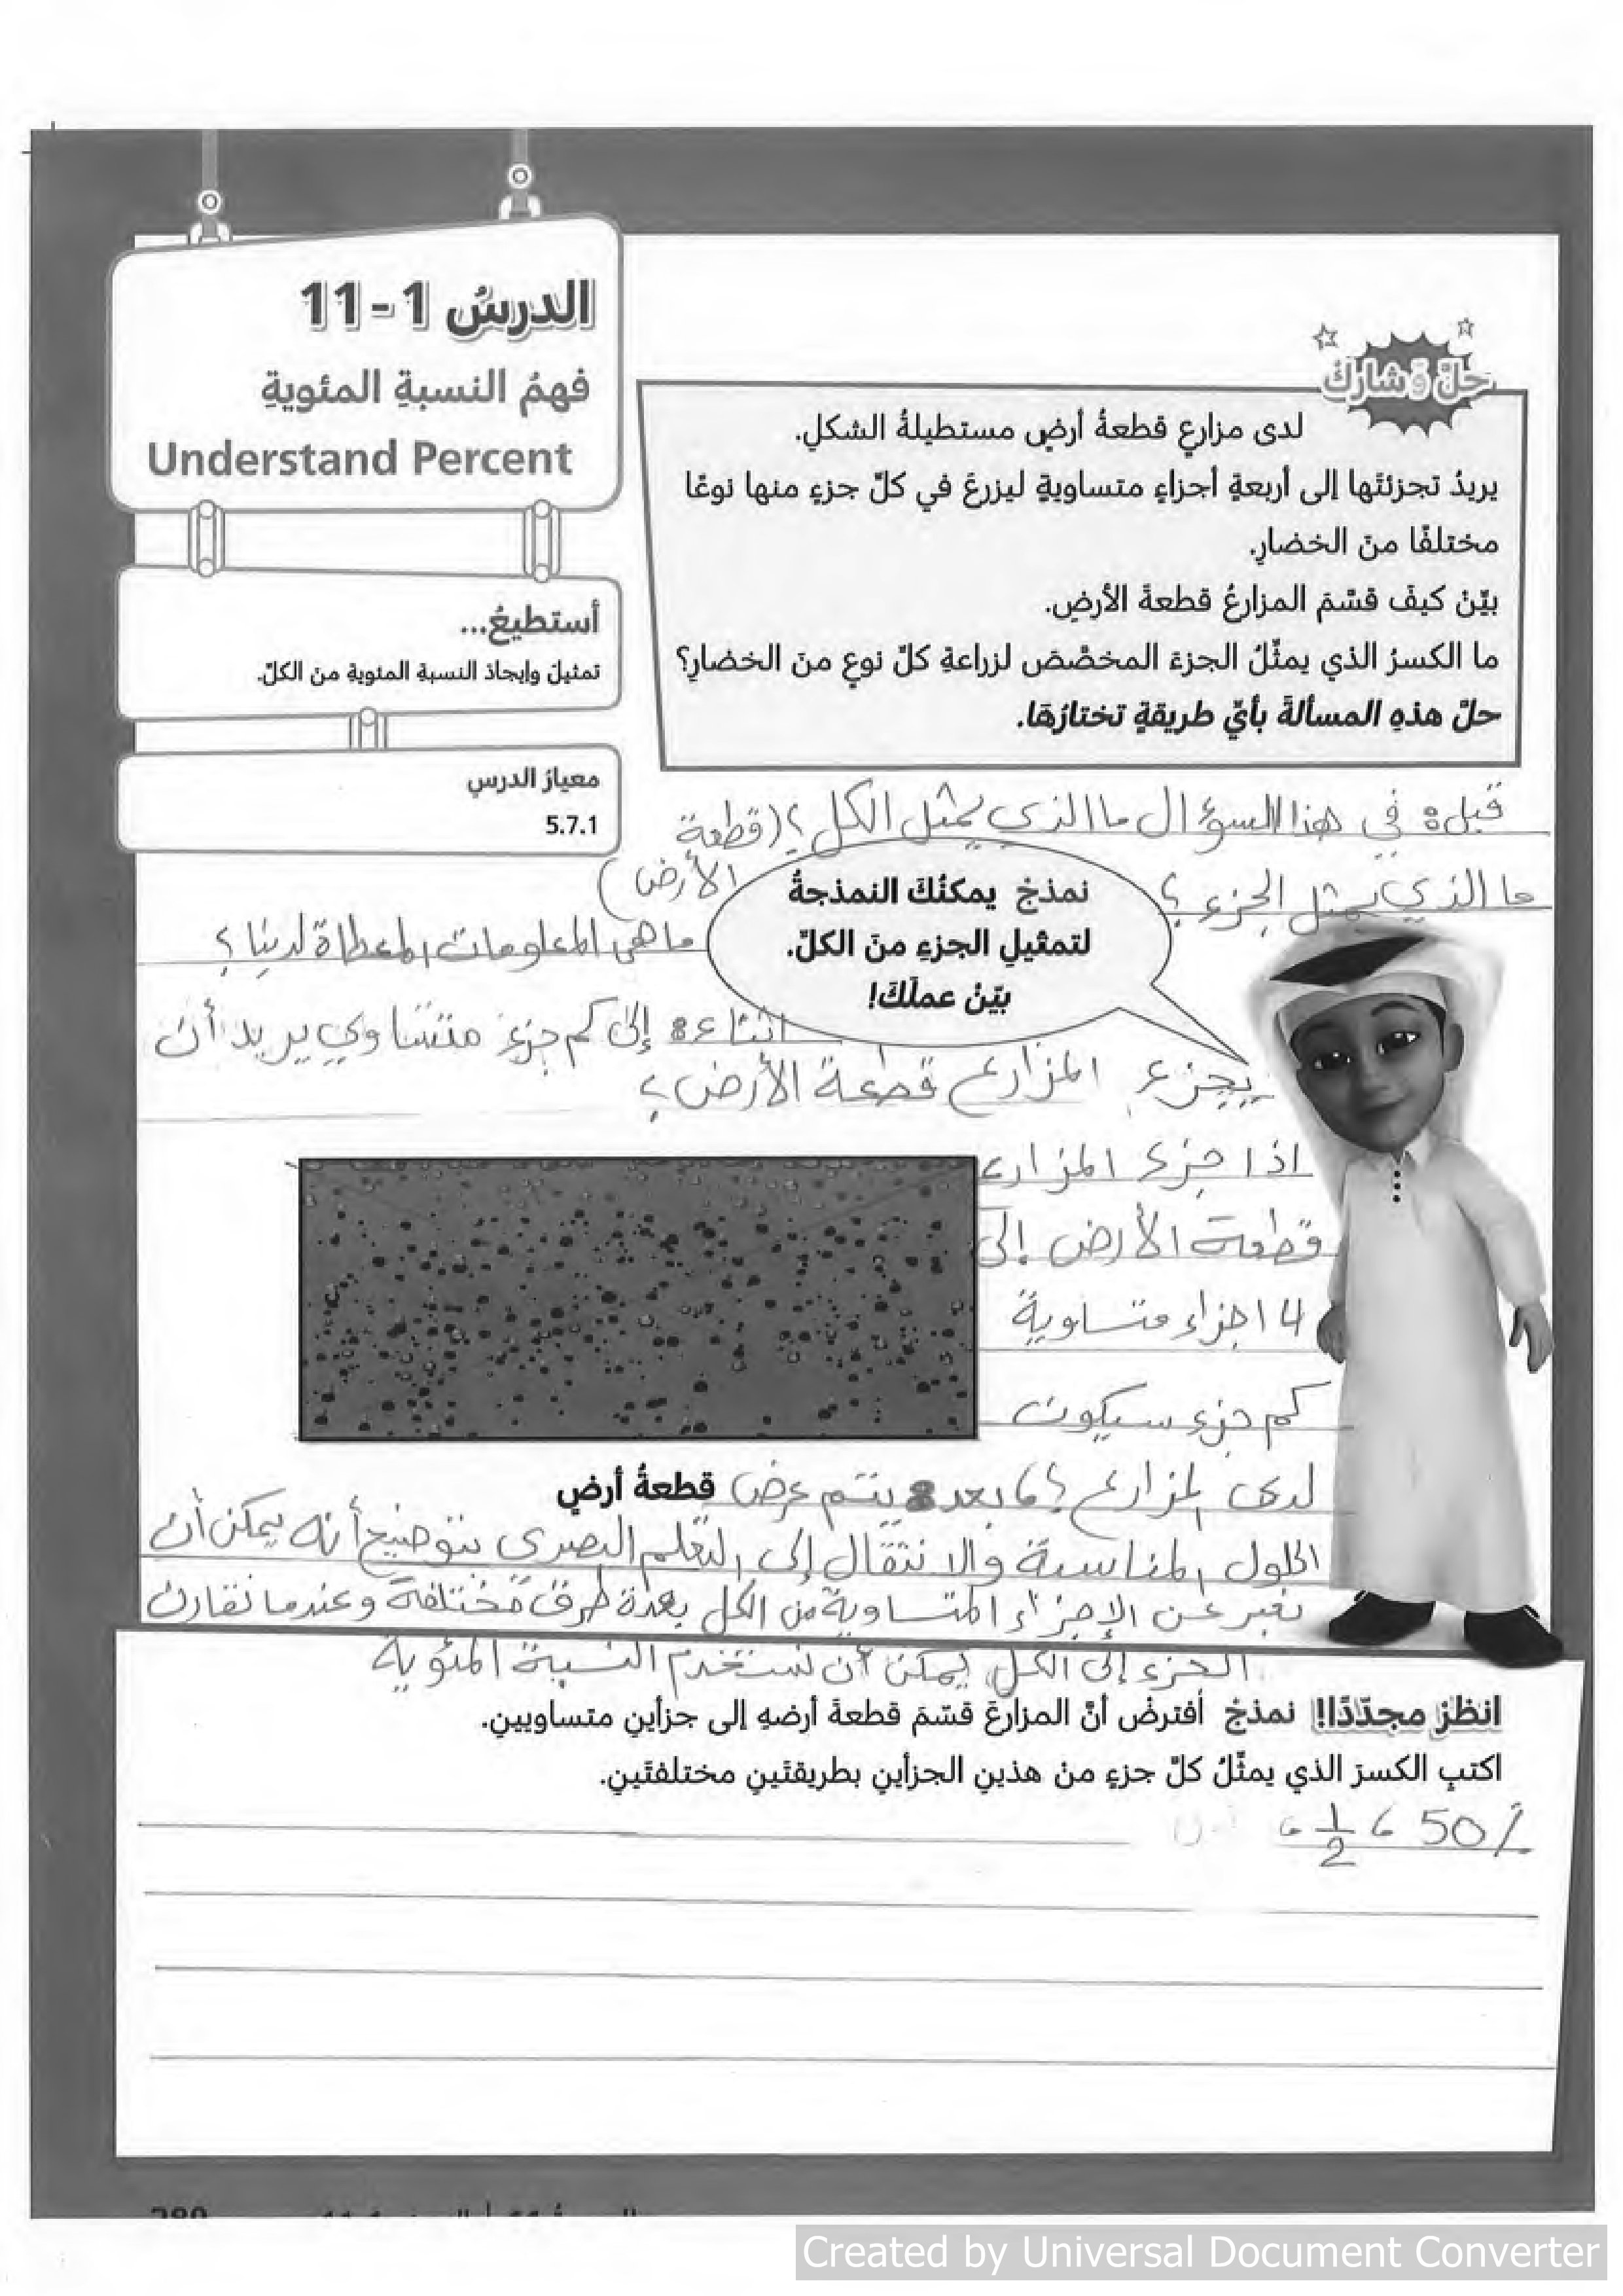 الدرسُ 1-11
فهمُ النسبةِ المئويةِ
Understand Percent
أستطيعُ...
تمثيلَ وإيجادَ النسبةِ المئويةِ منَ الكلِّ.
معيارُ الدرسِ
5.7.1
حلَّ وَ شارِكْ
لدى مزارعٍ قطعةُ أرضٍ مستطيلةُ الشكلِ.
يريدُ تجزئتَها إلى أربعةِ أجزاءٍ متساويةٍ ليزرعَ في كلِّ جزءٍ منها نوعًا
مختلفًا منَ الخضارِ.
بيِّنْ كيفَ قسَّمَ المزارعُ قطعةَ الأرضِ.
ما الكسرُ الذي يمثِّلُ الجزءَ المخصَّصَ لزراعةِ كلِّ نوعٍ منَ الخضارِ؟
حلَّ هذهِ المسألةَ بأيِّ طريقةٍ تختارُهَا.
قبل: في هذا السؤال ما الذي يمثل الكل؟ (قطعة
الأرض)
ما الذي يمثل الجزء؟
ما هي المعلومات المعطاة لدينا؟
نمذجْ يمكنُكَ النمذجةُ
لتمثيلِ الجزءِ منَ الكلِّ.
بيِّنْ عملَكَ!
اثناء: إلى كم جزء متساوي يريد أن
يجزء المزارع قطعة الأرض؟
اذا جزء المزارع
قطعة الأرض إلى
4 اجزاء متساوية
كم جزء سيكون
لدى المزارع؟، بعد: يتم عرض
قطعةُ أرضٍ
الحلول المناسبة والانتقال إلى التعلم البصري بتوضيح أنه يمكن أن
نعبر عن الاجزاء المتساوية من الكل بعدة طرق مختلفة وعندما نقارن
الجزء إلى الكل يمكن أن نستخدم النسبة المئوية
انظرْ مجدّدًا! نمذجْ أفترضُ أنَّ المزارعَ قسّمَ قطعةَ أرضهِ إلى جزأينِ متساويينِ.
اكتبِ الكسرَ الذي يمثِّلُ كلَّ جزءٍ منْ هذينِ الجزأينِ بطريقتَينِ مختلفتَينِ.
50% ، 1/2 ،
Created by Universal Document Converter